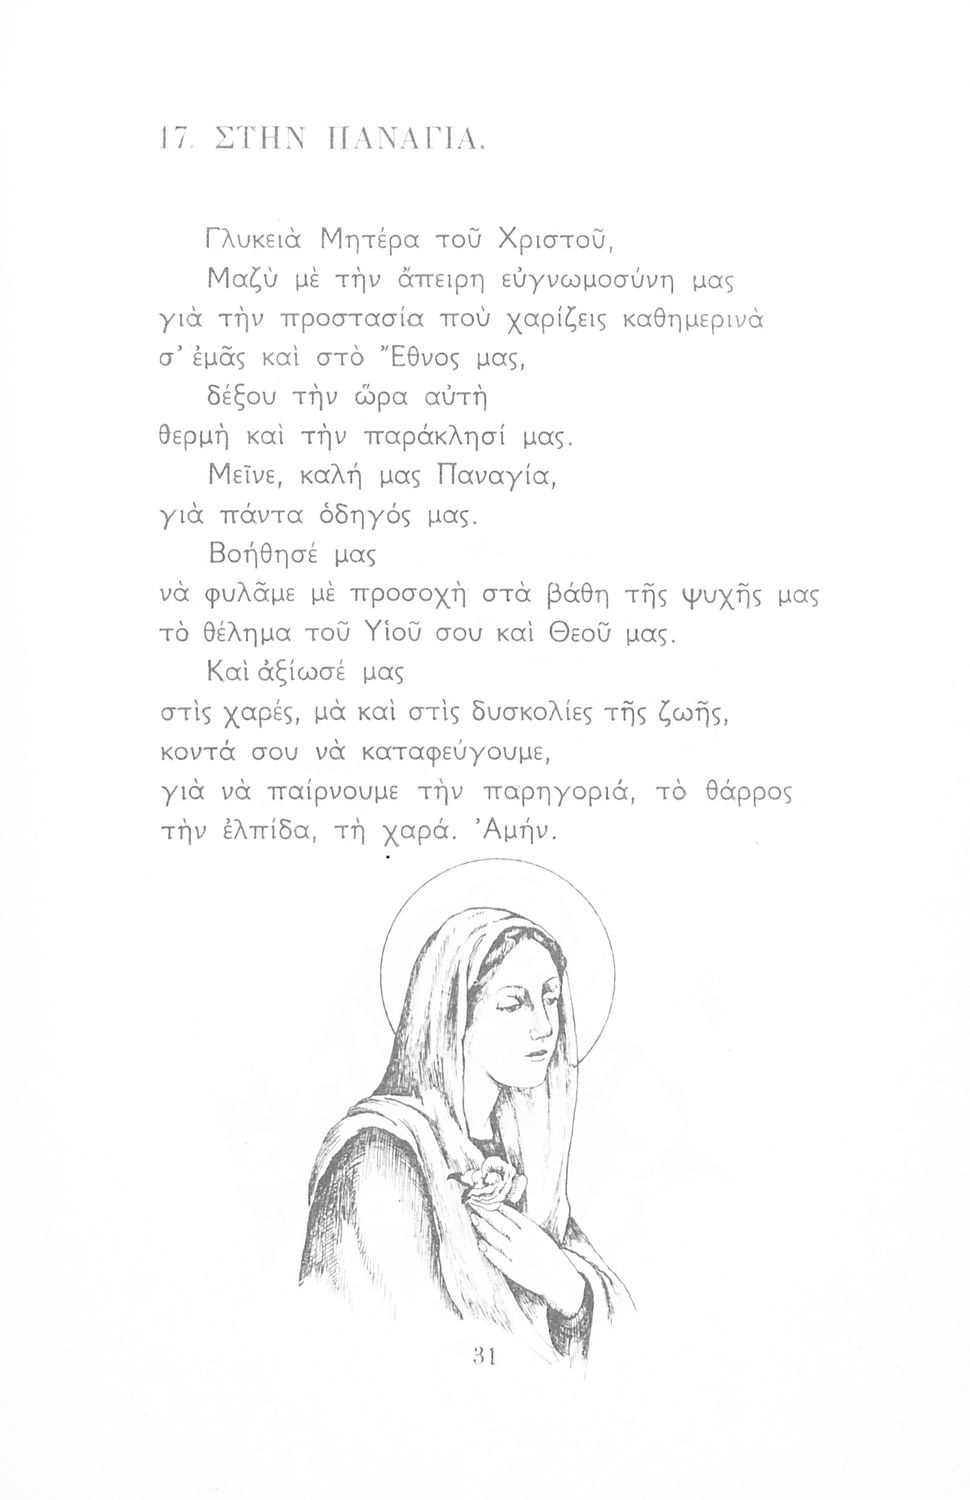 17. ΣΤΗΝ ΠΑΝΑΓΙΑ.
Γλυκειὰ Μητέρα τοῦ Χριστοῦ,
Μαζὺ μὲ τὴν ἄπειρη εὐγνωμοσύνη μας
γιὰ τὴν προστασία ποὺ χαρίζεις καθημερινὰ
σ' ἐμᾶς καὶ στὸ Ἔθνος μας,
δέξου τὴν ὥρα αὐτὴ
θερμὴ καὶ τὴν παράκλησί μας.
Μεῖνε, καλή μας Παναγία,
γιὰ πάντα ὁδηγός μας.
Βοήθησέ μας
νὰ φυλᾶμε μὲ προσοχὴ στὰ βάθη τῆς ψυχῆς μας
τὸ θέλημα τοῦ Υἱοῦ σου καὶ Θεοῦ μας.
Καὶ ἀξίωσέ μας
στὶς χαρές, μὰ καὶ στὶς δυσκολίες τῆς ζωῆς,
κοντά σου νὰ καταφεύγουμε,
γιὰ νὰ παίρνουμε τὴν παρηγοριά, τὸ θάρρος
τὴν ἐλπίδα, τὴ χαρά. Ἀμήν.
31